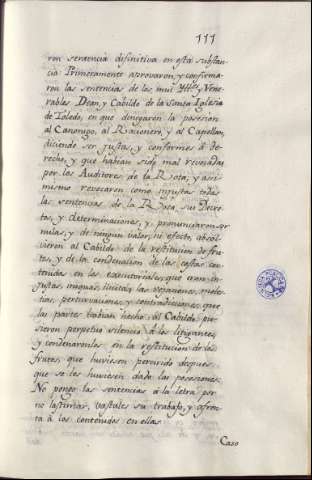 111
ron sentencia difinitiva en esta substan-
cia Primeramente aprovaron, y confirma-
ron las sentencias de los mui Yllres y Vene-
rables Dean, y Cabildo de la Santa Iglesia
de Toledo, en que denegaron la posesion
al Canonigo, al Racionero, y al Capellan,
diciendo ser justas, y conformes á de-
recho, y que habian sido mal revocadas
por los Auditores de la Rota, y asi-
mismo revocaron como injustas todas
las sentencias de la Rota, sus Decre-
tos, y determinaciones, y pronunciaron
nulas, y de ningun valor, ni efecto, absol-
vieron al Cabildo de la restitucion de fru-
tos, y de la condenacion de las costas con-
tenidas en las executoriales, que eran in-
justas, iniquas, ilicitas, las vexaciones, moles-
tias, perturvaciones, y contradicciones, que
las partes habian hecho al Cabildo, pu-
sieron perpetuo silencio á los litigantes,
y condenaronles en la restitucion de los
frutos, que huviesen percivido despues
que se les huviesen dado las posesiones.
No pongo las sentencias á la letra por
no lastimar, vastales su trabajo, y afren-
ta á los contenidos en ellas.
Caso